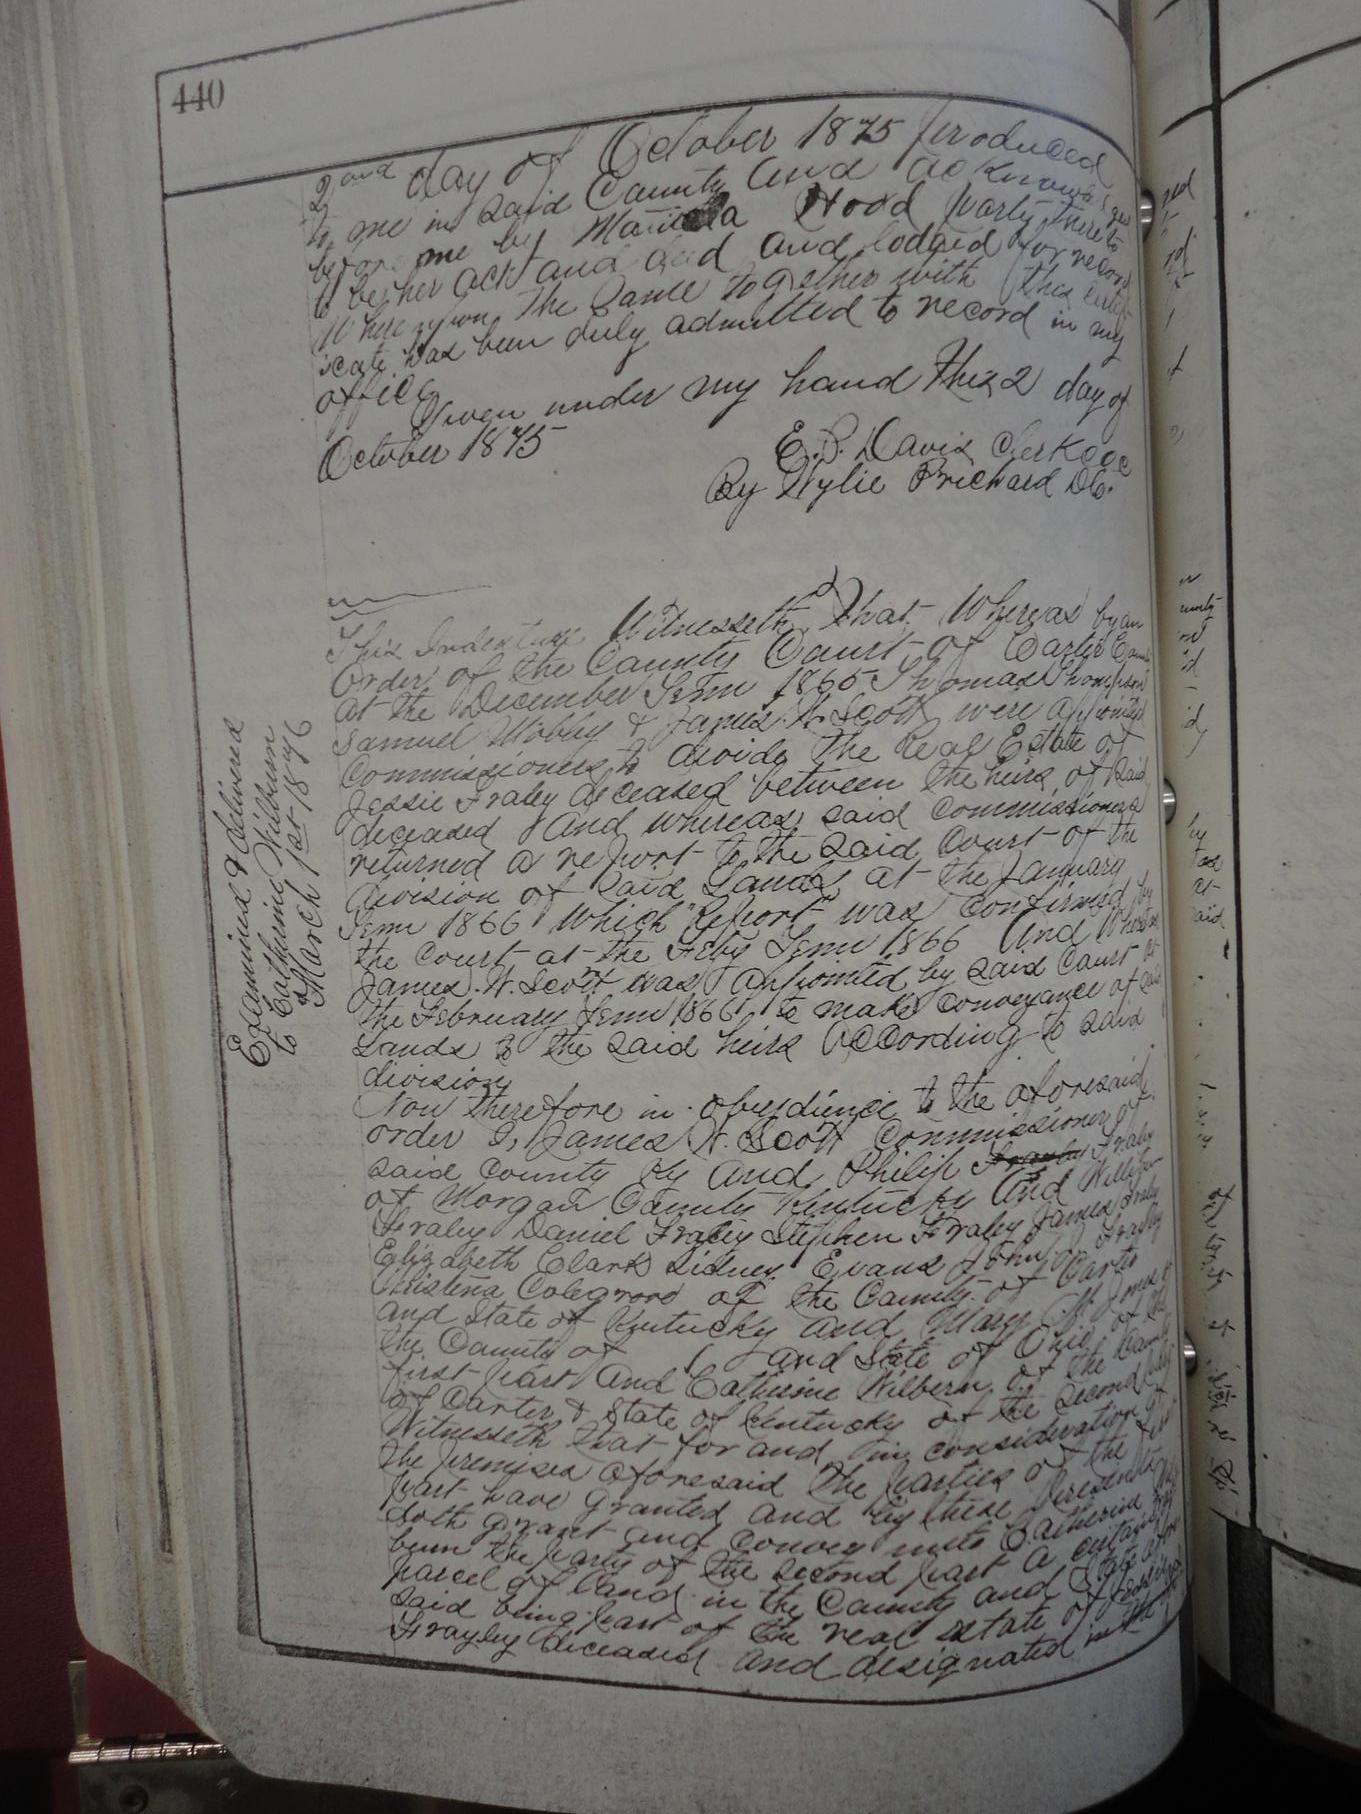 440
2nd day of October 1875 produced
to me in said County and acknowledged
before me by Marinda Hood party thereto
to be her act and deed and lodgid for record
Whereupon the Same together with this certif
icate has been duly admitted to record in my
office
Given under my hand this 2 day of
October 1875
E.B. Davis Clerk
By Wylie Prichard D.C.
Examined & delivered
to Catharine Wilburn
March 1st 1876
This Indenture Witnesseth That Whereas by an
Order of the County Court of Carter County
at the December Term 1865 Thomas Thompson
Samuel & James W. Scott were appointed
Commissioners to divide the Real Estate of
Jessie Fraley deceased between the heirs of Said
deceased And whereas said Commissioners
returned a report to the Said Court of the
division of Said Lands at the January
Term 1866 Which Report was Confirmed by
the Court at the Feby Term 1866 And Whereas
James W. Scott was appointed by said Court at
the February Term 1866 to make conveyance of said
Lands to the said heirs According to said
division
Now therefore in obeidience to the aforesaid
order I, James W. Scott Commissioner of
said County Ky and Philip Fraley
of Morgan County Kentucky And William
Fraley Daniel Fraley Stephen Fraley James Fraley
Eglizabeth Clark Sidney Evans John Fraley
Christena Colegrove of the County of Carter
and State of Kentucky and Mary M. Jones of
the County of ( and State of Ohio of the
first part and Catherine Wilbern of the County
of Carter & State of Kentucky of the Second part
Witnesseth that for and in consideration of
the premises aforesaid the parties of the first
part have granted and by these presents
doth grant and convey unto Catherine Wil
burn the party of the second part a certain
parcel of land in the County and State afore
said being part of the real estate of Jessie
Frayley deceased and designated in the